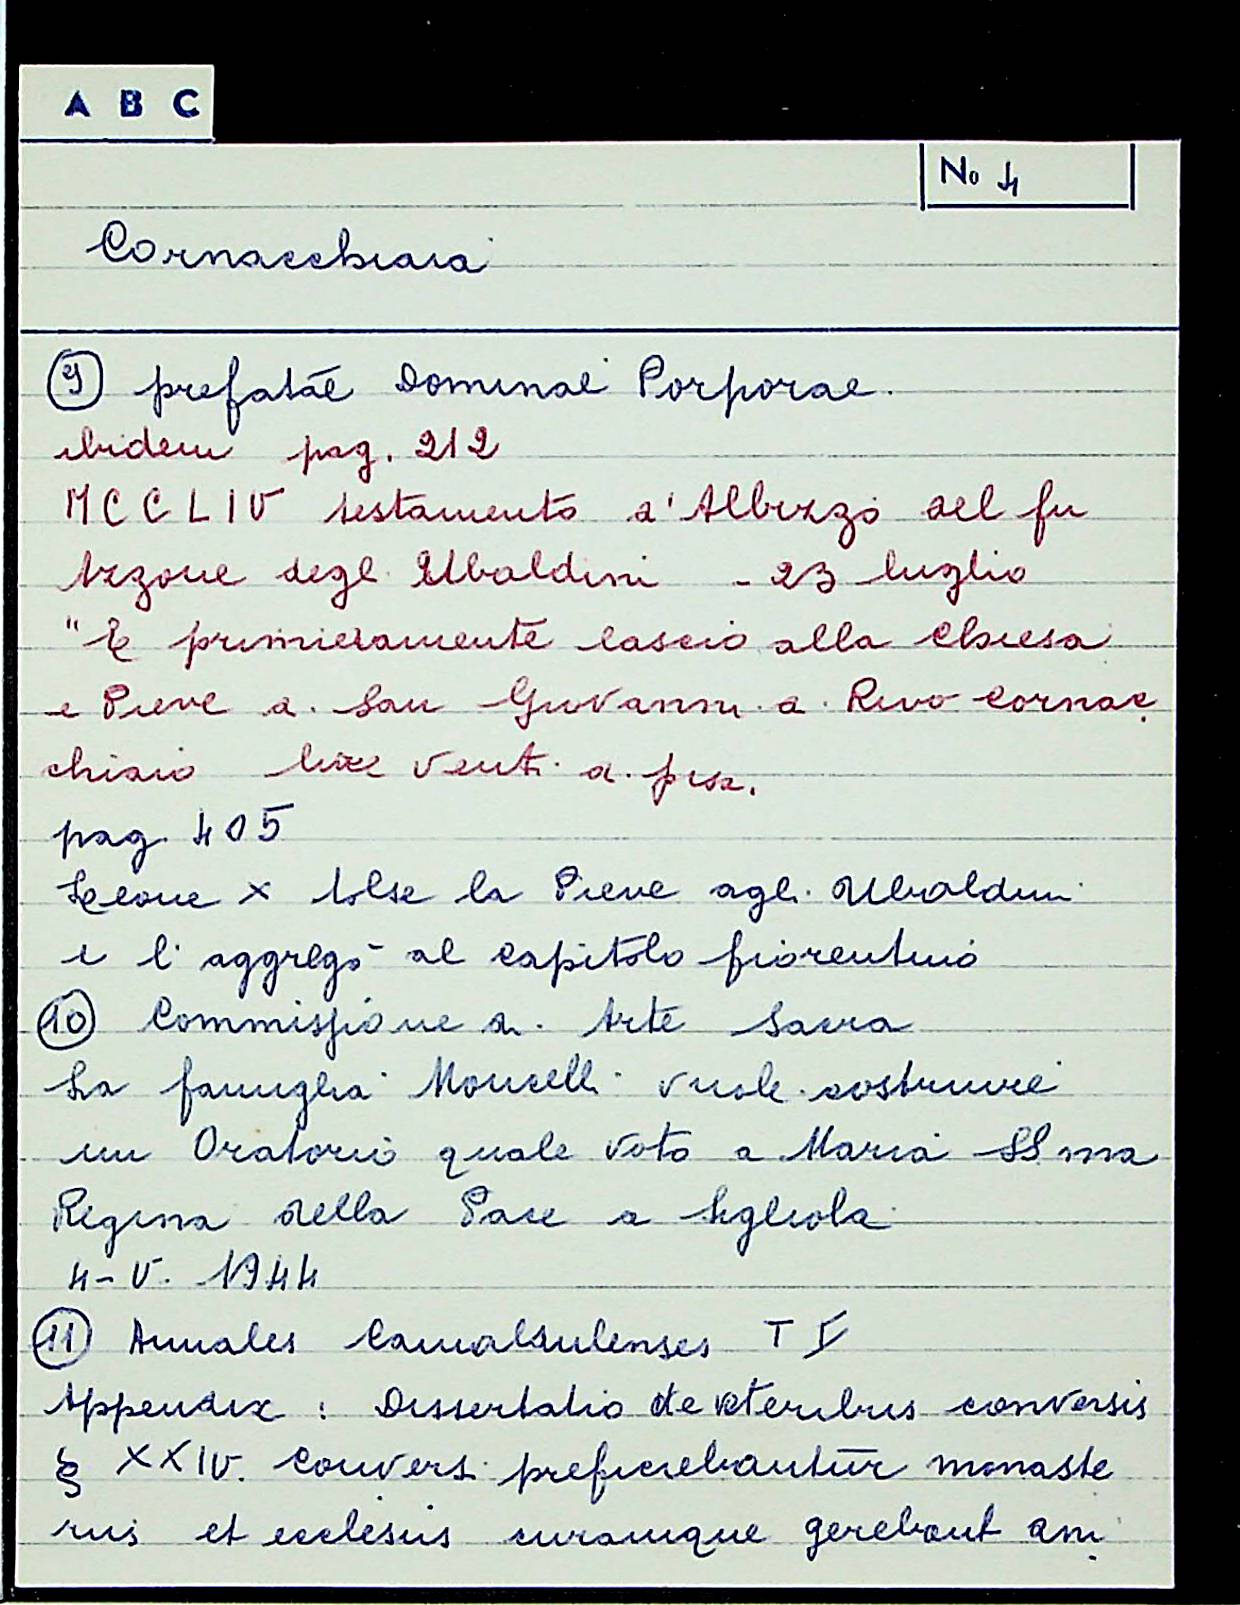 A B C
No 4
Cornacchiaia
9 prefatae Dominae Porporae.
ibidem pag. 212
MCCLIV testamento d'Albizzo del fu
Azzone degli Ubaldini - 23 luglio
"E primieramente lascio alla Chiesa
e Pieve di San Giovanni a Rivo cornac
chiaio lire venti di pisa.
pag. 405
Leone X tolse la Pieve agli Ubaldini
e l'aggregò al capitolo fiorentino
10 Commissione di Arte Sacra
La famiglia Moncelli vuole costruire
un Oratorio quale voto a Maria SSma
Regina della Pace a Sigliola
4-V. 1944
11 Annales Camaldulenses T V
Appendix: Dissertatio de veteribus conversis
§ XXIV. Conversi preficiebantur monaste
riis et ecclesiis curamque gerebant ani